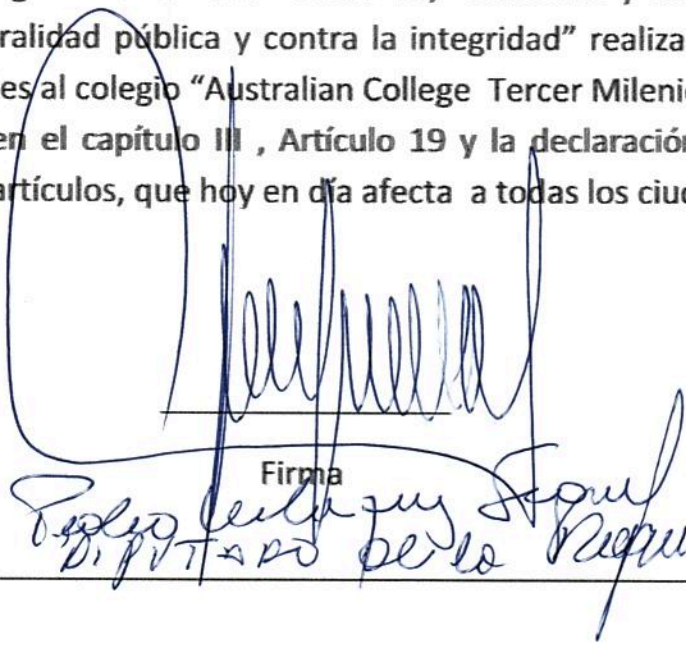 ralidad pública y contra la integridad” realiza
es al colegio “Australian College Tercer Milenio
en el capítulo III , Artículo 19 y la declaración
artículos, que hoy en día afecta a todas los ciud
Firma
Pedro Velásquez Seguel
DIPUTADO de la